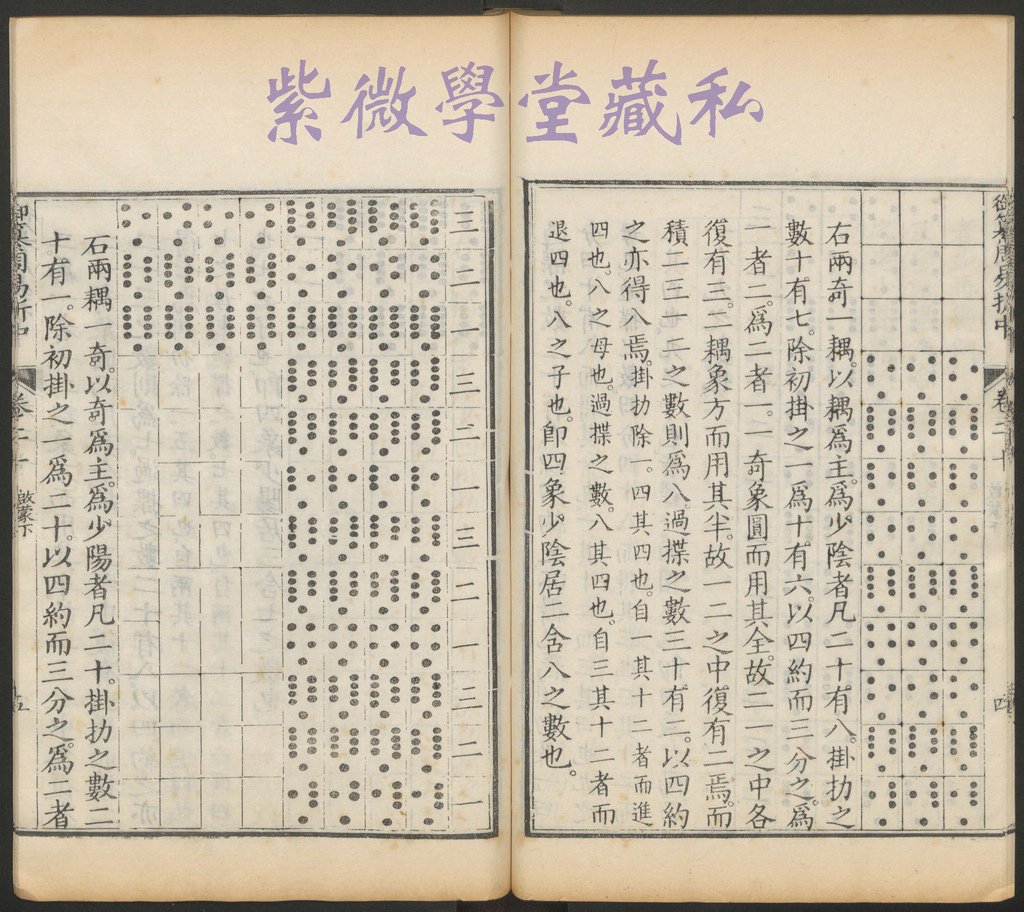 紫微學堂藏私
御纂周易折中 卷二十 四
右兩奇一耦。以耦為主。為少陰者凡二十有八。掛扐之
數十有七。除初掛之一為十有六。以四約而三分之。為
一者二。為二者一。一奇象圓而用其全。故二一之中各
復有三。二耦象方而用其半。故一二之中復有二焉。而
積二三一二之數則為八。過揲之數三十有二。以四約
之亦得八焉。掛扐除一。四其四也。自一其十二者而進
四也。八之母也。過揲之數。八其四也。自三其十二者而
退四也。八之子也。卽四象少陰居二含八之數也。
三二一三二一三二一三二一
右兩耦一奇。以奇為主。為少陽者凡二十。掛扐之數二
十有一。除初掛之一為二十。以四約而三分之。為二者
御纂周易折中 卷二十 啟蒙下 五